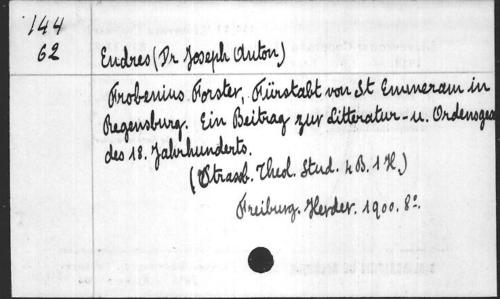 144
62
Endres (Dr Joseph Anton)
Frobenius Forster, Fürstabt von St Emmeram in
Regensburg. Ein Beitrag zur Litteratur- u. Ordensges
des 18. Jahrhunderts.
(Strassb. Theol. Stud. 4 B. 1 H.)
Freiburg. Herder. 1900. 8º.